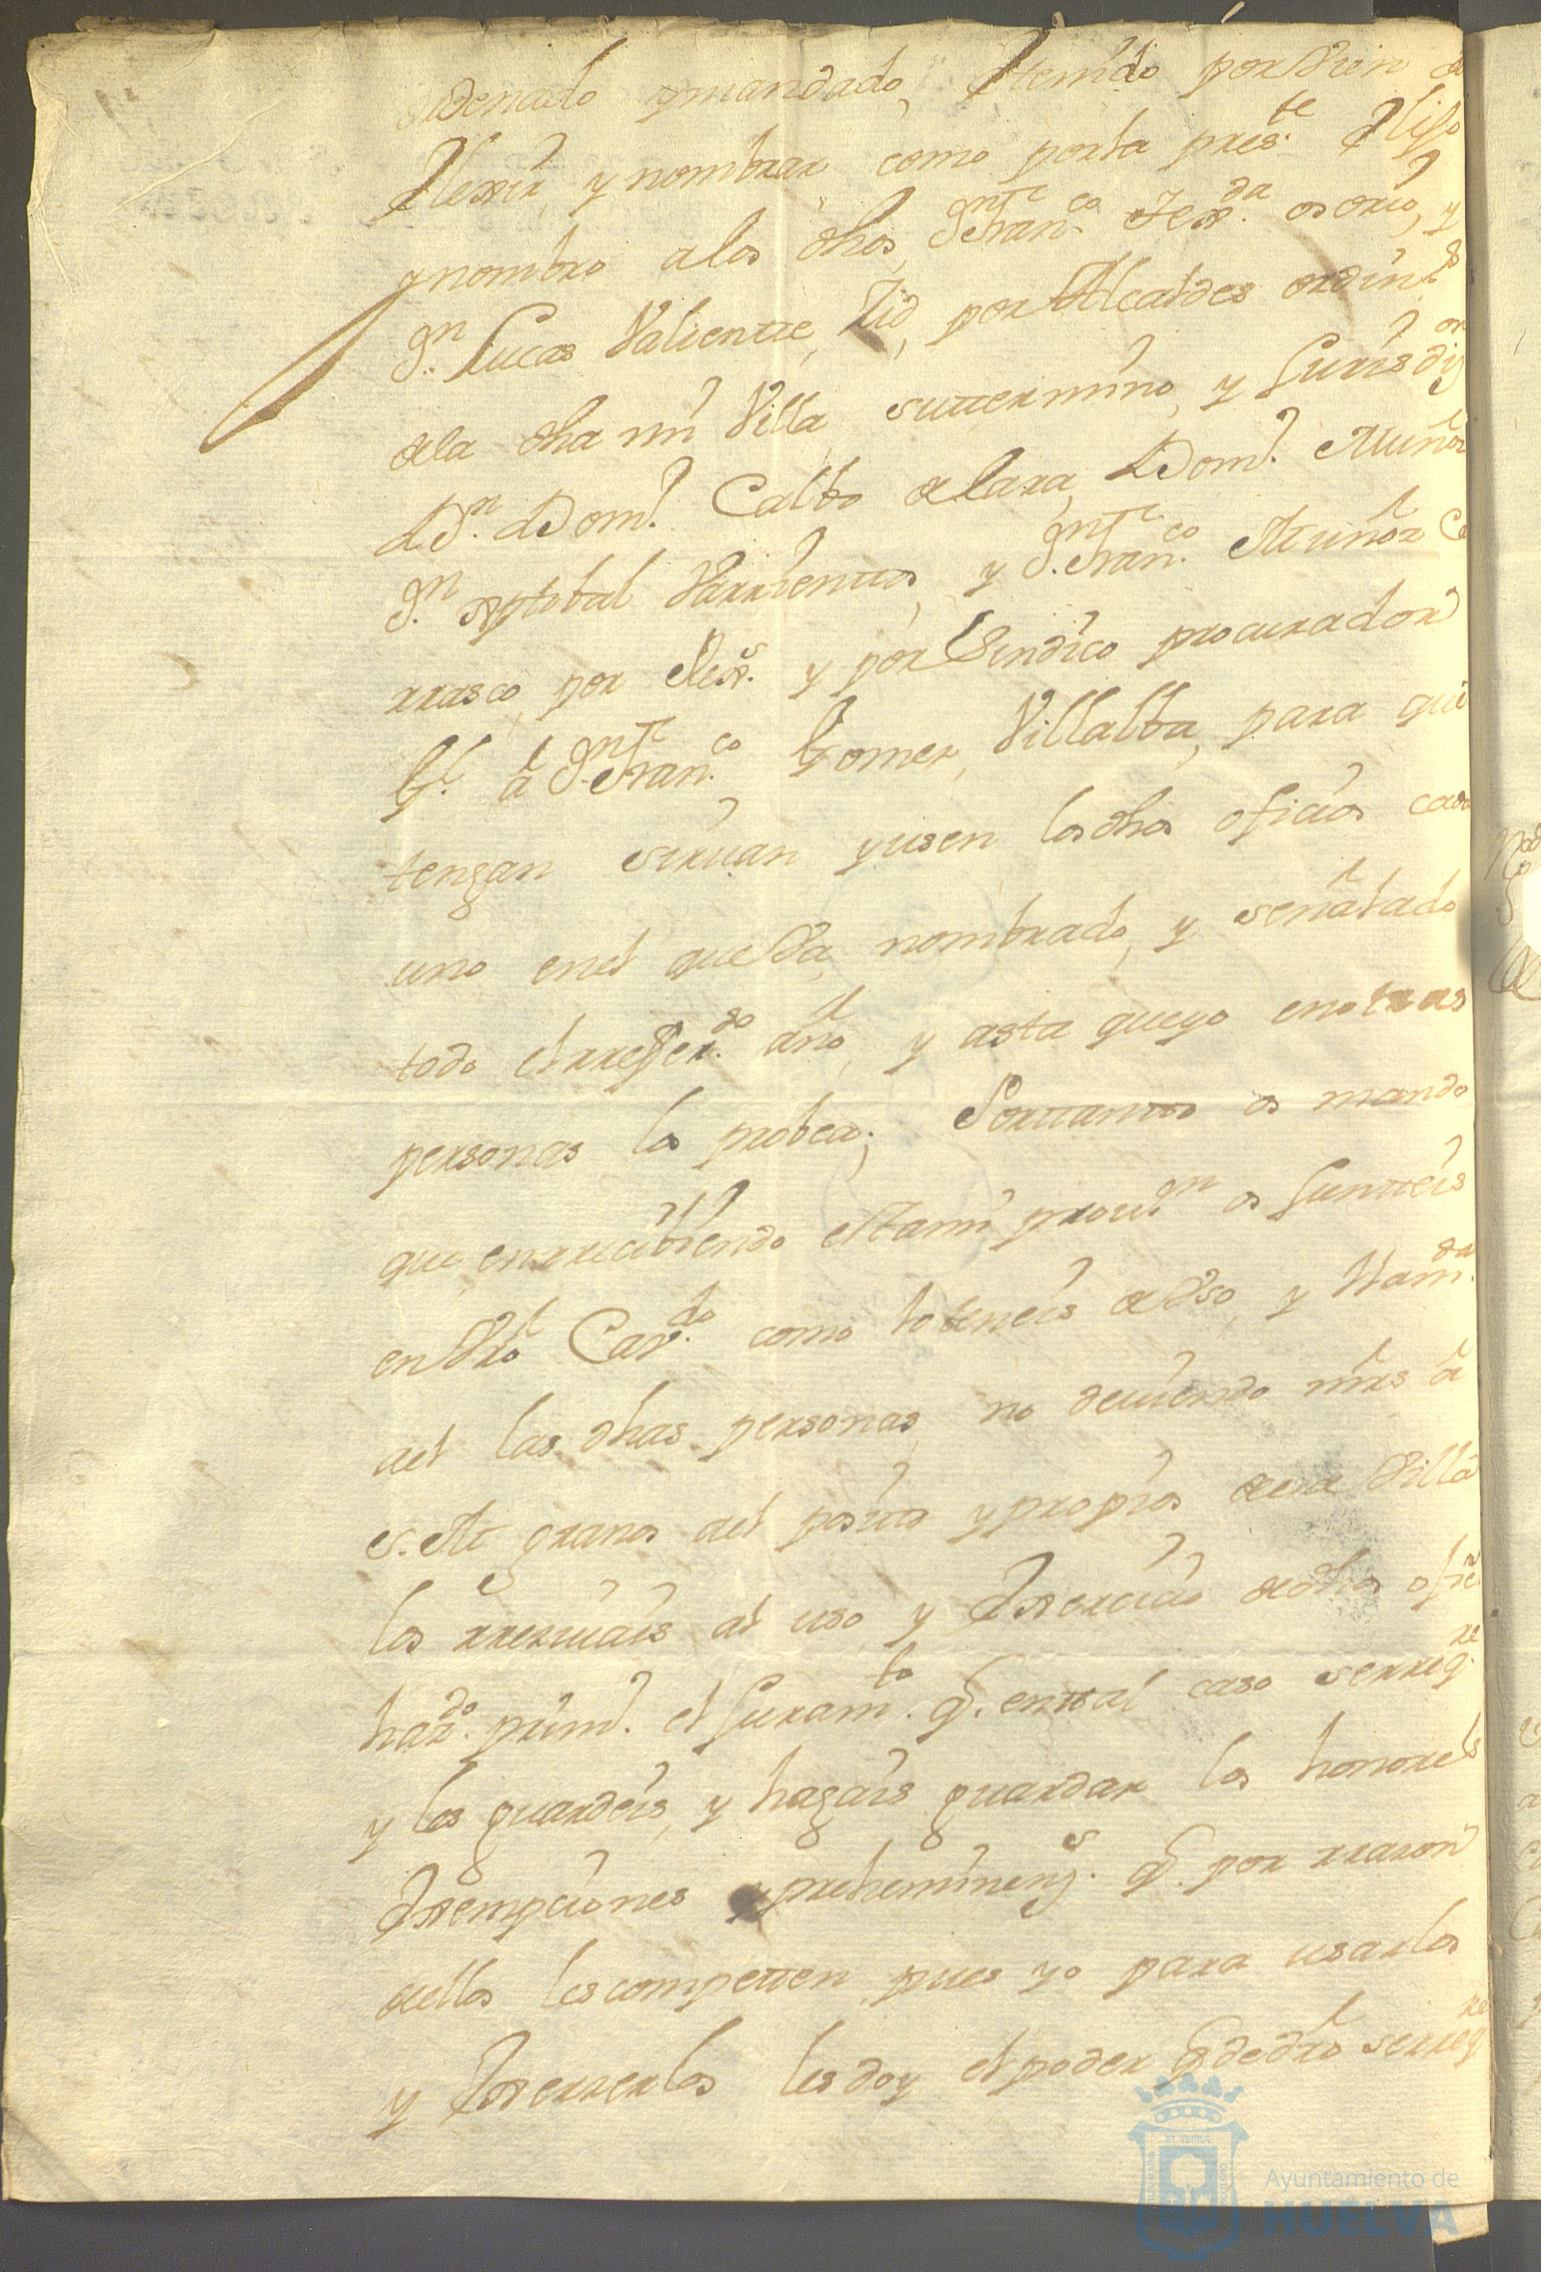 ordenado ymandado, Etenido porvien de
Elexir, y nombrar como porla pres.te Elijo
ynombro alos dhos, Dn Fran.co Texa.da osorio, y
Dn Lucas Valiente, Zid, por Alcaldes ordin.s
dela dha mi Villa suttermino, y Jurisdiz.on
a Dn Dom.o Calbo delara, a Dom.o Muñoz
Dn Xptobal Varrientos, y Dn Fran.co Muñoz Ca
rrasco, por Rex.s y por Sindico procurador
G.l a Dn Fran.co Gomez, Villalba, para que
tengan siruan yusen losdhos oficios cada
uno enel queVa nombrado, y señalado
todo elrrefer.do año, y asta queyo enotras
personas los probea; Porttantto os mando
que enrreciviendo estami prou.on os Junteis
enVro Cav.do como lotineis deVso, y llam.da
ael las dhas personas, no deviendo mrs a
S. M. granos del posito ypropios desa Villa
los rreciuais al uso y Exercicio dedhos ofic.s
haz.do prim.o el Juram.to q. enttal caso serreq.re
y los guardeis, y hagais guardar los honores
Exempciones ypreheminenz.s q. por rrazon
dellos lescompetten, pues yo para usarlos
y Exerzerlos les doy el poder q dedro serreq.re
Ayuntamiento de
HUELVA